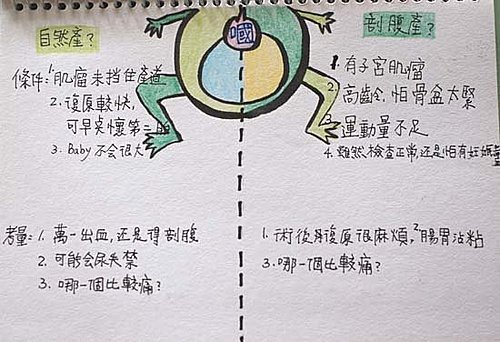 自然產?
條件=1.肌瘤未挡住產道
2.復原較快,
可早点懷第二胎
3. Baby 不会很大
考量=1.萬一出血,还是得剖腹
2.可能会尿失禁
3.哪一個比較痛?
嘓
剖腹產?
1.有子宮肌瘤
2.高齡,怕骨盆太緊
3.運動量不足
4.雖然檢查正常,还是怕有妊娠
1.術後復原很麻煩,2.腸胃沾粘
3.哪一個比較痛?